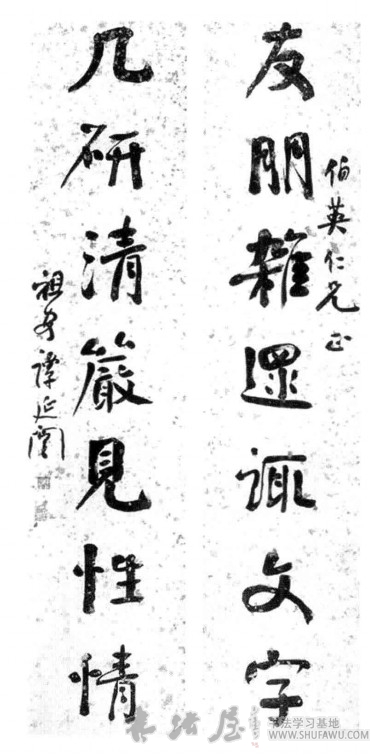 伯英仁兄正
友朋雜遝諏文字
几研清嚴見性情
祖安譚延闓
书法屋
书法学习基地
WWW.SHUFAWU.COM